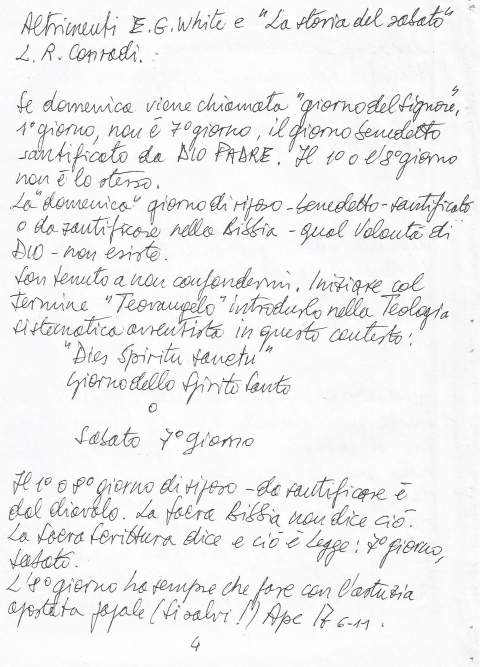 Altrimenti E.G. White e "La storia del sabato"
L. R. Conradi.
Se domenica viene chiamata "giorno del Signore",
1° giorno, non è 7° giorno, il giorno benedetto
santificato da DIO PADRE. Il 1° o l'8° giorno
non è lo stesso.
La "domenica" giorno di riposo - benedetto - santificato
o da santificare nella Bibbia - qual Volontà di
DIO - non esiste.
Son tenuto a non confondermi. Iniziare col
termine "Teovangelo" introdurlo nella Teologia
sistematica avventista in questo contesto:
"Dies Spiritu sanctu"
Giorno dello Spirito Santo
o
Sabato 7° giorno
Il 1° o 8° giorno di riposo - da santificare è
dal diavolo. La Sacra Bibbia non dice ciò.
La Sacra Scrittura dice e ciò è Legge: 7° giorno,
sabato.
L'8° giorno ha sempre che fare con l'astuzia
apostata papale (si salvi!) Apc 17 6-11.
4